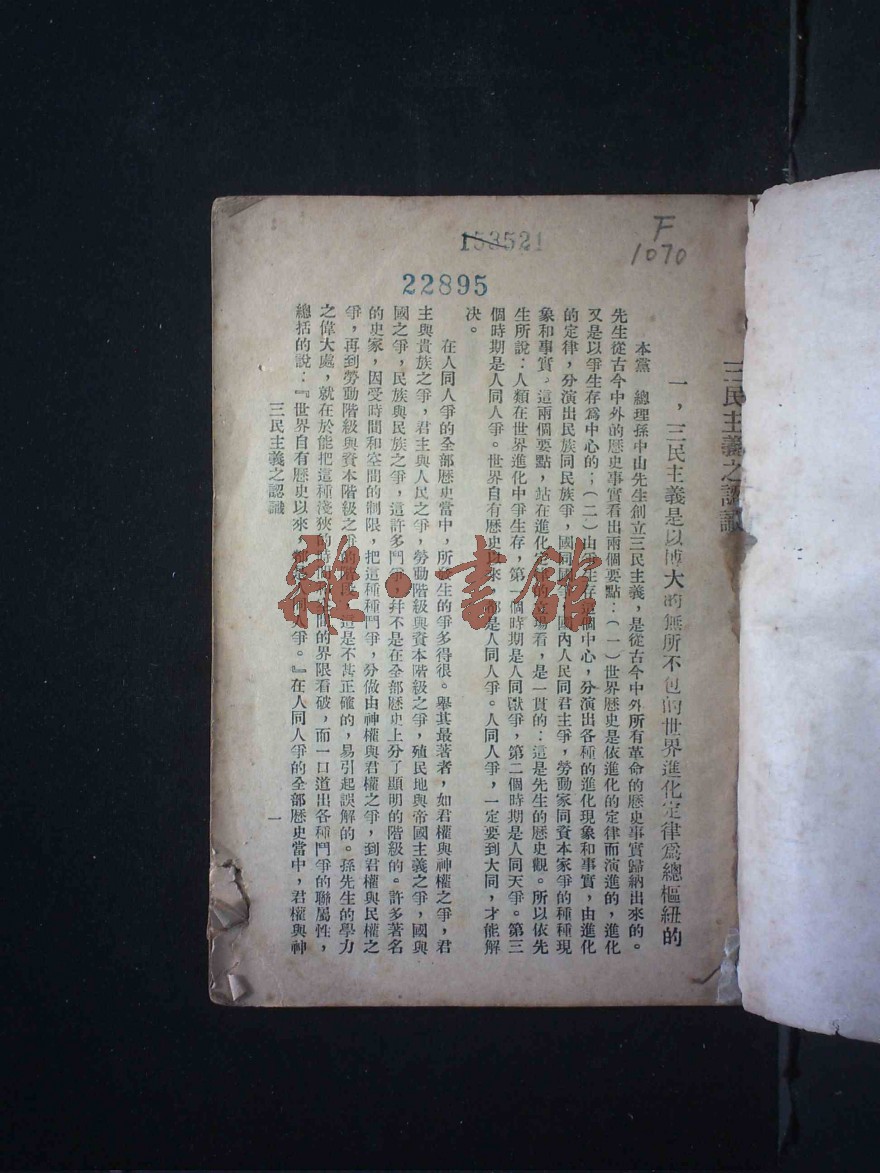 F
1070
153521
22895
三民主義之認識
一，三民主義是以博大的無所不包的世界進化定律爲總樞紐的
本黨　總理孫中山先生創立三民主義，是從古今中外所有革命的歷史事實歸納出來的。
先生從古今中外的歷史事實看出兩個要點：（一）世界歷史是依進化的定律而演進的，進化
又是以爭生存爲中心的；（二）由爭生存這個中心，分演出各種的進化現象和事實，由進化
的定律，分演出民族同民族爭，國同國爭，國內人民同君主爭，勞動家同資本家爭的種種現
象和事實。這兩個要點，站在進化定律的立場看，是一貫的：這是先生的歷史觀。所以依先
生所說：人類在世界進化中爭生存，第一個時期是人同獸爭，第二個時期是人同天爭。第三
個時期是人同人爭。世界自有歷史以來，都是人同人爭。人同人爭，一定要到大同，才能解
決。
在人同人爭的全部歷史當中，所發生的爭多得很。舉其最著者，如君權與神權之爭，君
主與貴族之爭，君主與人民之爭，勞動階級與資本階級之爭，殖民地與帝國主義之爭，國與
國之爭，民族與民族之爭，這許多鬥爭，并不是在全部歷史上分了顯明的階級的。許多著名
的史家，因受時間和空間的制限，把這種種鬥爭，分做由神權與君權之爭，到君權與民權之
爭，再到勞動階級與資本階級之爭的階段，這是不甚正確的，易引起誤解的。孫先生的學力
之偉大處，就在於能把這種淺狹的時間空間的界限看破，而一口道出各種鬥爭的聯屬性，
總括的說：『世界自有歷史以來，都是人同人爭。』在人同人爭的全部歷史當中，君權與神
三民主義之認識
一
雜·書館